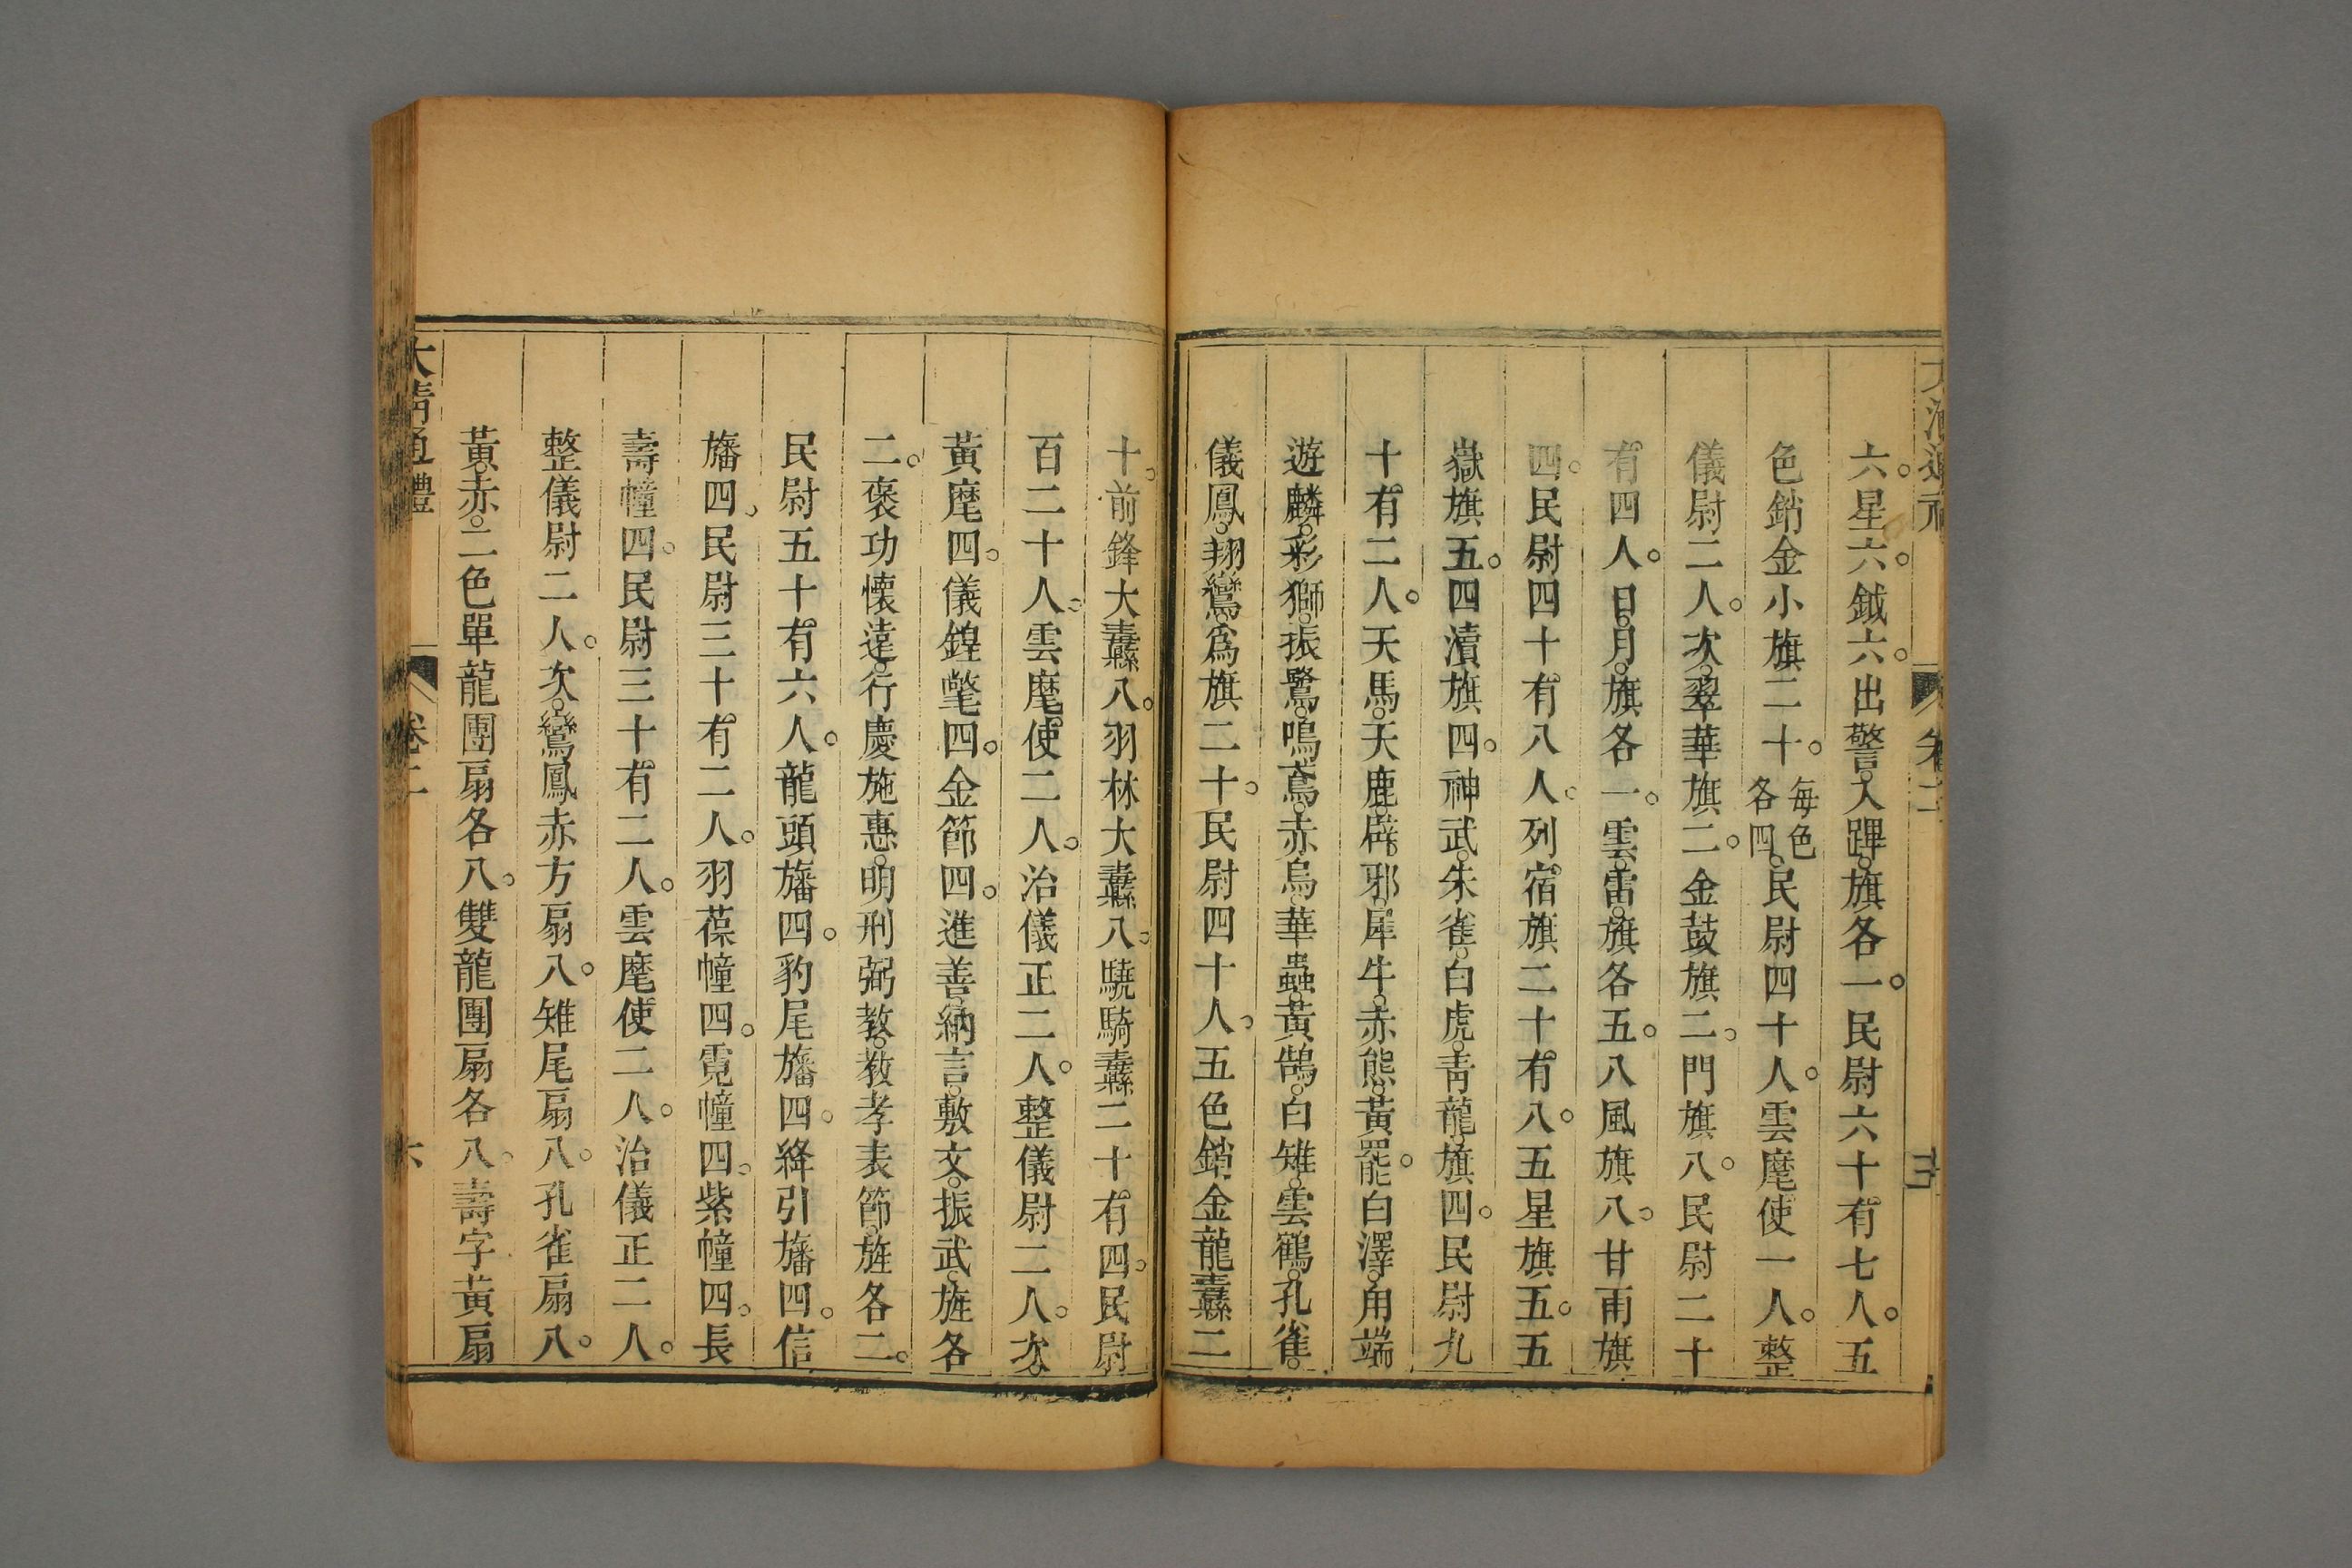 六。星六。鉞六。出警。入蹕。旗各一。民尉六十有七人。五
色銷金小旗二十。每色各四。民尉四十人。雲麾使一人。整
儀尉二人。次。翠華旗二。金鼓旗二。門旗八。民尉二十
有四人。日。月。旗各一。雲。雷。旗各五。八風旗八。甘雨旗
四。民尉四十有八人。列宿旗二十有八。五星旗五。五
嶽旗五。四瀆旗四。神武。朱雀。白虎。青龍。旗四。民尉九
十有二人。天馬。天鹿。辟邪。犀牛。赤熊。黃羆。白澤。角端
遊麟。彩獅。振鷺。鳴鳶。赤烏。華蟲。黃鵠。白雉。雲鶴。孔雀。
儀鳳。翔鸞。爲旗二十。民尉四十人。五色銷金龍纛二
十。前鋒大纛八。羽林大纛八。驍騎纛二十有四。民尉
百二十人。雲麾使二人。治儀正二人。整儀尉二人。次。
黃麾四。儀鍠氅四。金節四。進善。納言。敷文。振武。旌各
二。褒功懷遠。行慶施惠。明刑弼教。教孝表節。旌各二。
民尉五十有六人。龍頭旛四。豹尾旛四。絳引旛四。信
旛四。民尉三十有二人。羽葆幢四。霓幢四。紫幢四。長
壽幢四。民尉三十有二人。雲麾使二人。治儀正二人。
整儀尉二人。次。鸞鳳赤方扇八。雉尾扇八。孔雀扇八。
黃。赤。二色單龍團扇各八。雙龍團扇各八。壽字黃扇
大清通禮 卷二 六